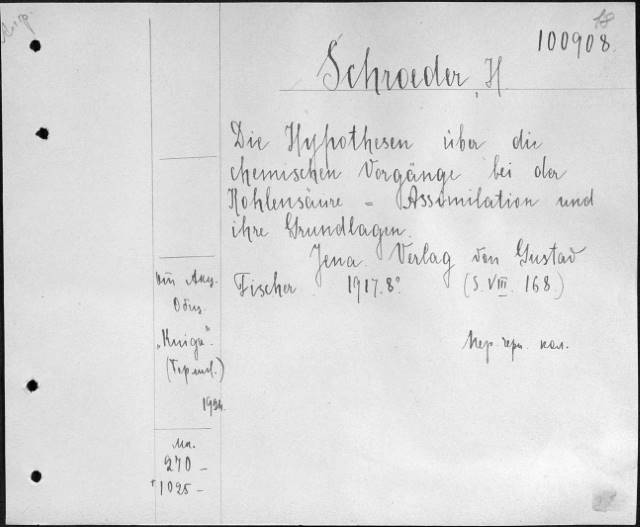 100908
Schroeder, H
Die Hypothesen über die
chemischen Vorgänge bei der
Kohlensäure - Assimilation und
ihre Grundlagen.
Jena Verlag von Gustav
Fischer 1917. 8° (S. VIII. 168.)
Акц.
Общ.
„Книга"
1924.
270 -
1025 -